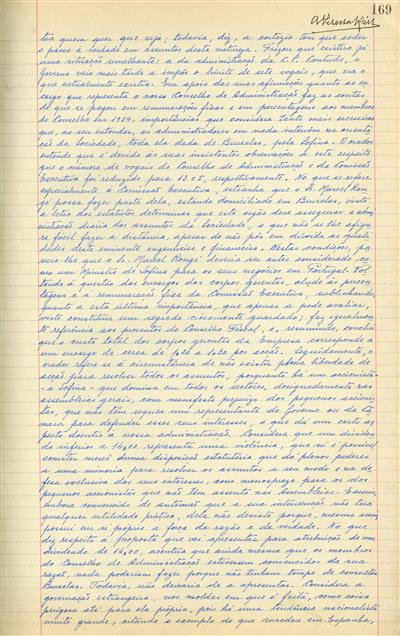 169
tra quem quer que seja; todavia, diz, a cortezia tem que ceder
o passo à verdade em assuntos desta natureza. Frizou que existira já
uma situação semelhante: a da administração da C.P. Contudo, o
Governo veio mais tarde a impôr o limite de sete vogais, que era o
que actualmente existia. Em apoio das suas afirmações quanto ao en-
cargo que representa o nosso Conselho de Administração faz as contas
do que se pagou em remunerações fixas e em percentagens aos membros
do Conselho em 1954, importâncias que considera tanto mais excessivas
que, no seu entender, os administradores em nada intervêm na orienta-
ção da Sociedade, toda ela dada de Bruxelas, pela Sofina. O orador
entende que é devido às suas insistentes observações a este respeito
que o número de vogais do Conselho de Administração e da Comissão
Executiva foi reduzido para 13 e 5, respectivamente. No que se refere
especialmente à Comissão Executiva, estranha que o Sr. Marcel Ron-
gé possa fazer parte dela, estando domiciliado em Bruxelas, visto
a letra dos estatutos determinar que este orgão deve assegurar a admi-
nistração diária dos assuntos da Sociedade, o que não se lhe afigu-
ra fácil fazer a distância, apesar de não pôr em dúvida as quali-
dades deste eminente engenheiro e financeiro. Nestas condições, pa-
rece-lhe que o Sr. Marcel Rongé deveria ser antes considerado co-
mo um Ministro da Sofina para os seus negócios em Portugal. Vol-
tando à questão dos encargos dos corpos gerentes, alude às percen-
tagens e à remuneração fixa da Comissão Executiva, sublinhando,
quanto a esta última importância, que apenas a pode avaliar,
visto constituir um segredo ciosamente guardado; faz igualmen-
te referência aos proventos do Conselho Fiscal, e, resumindo, conclui
que o custo total dos corpos gerentes da Empresa corresponde a
um encargo de cerca de 1$20 a 1$30 por acção. Seguidamente, o
orador refere-se à circunstância de não existir plena liberdade de
acção para resolver todos os assuntos, porquanto há um accionista-
- a Sofina - que domina em todos os sectores, designadamente nas
assembleias gerais, com manifesto prejuizo dos pequenos accionis-
tas, que não têm sequer um representante do Governo ou da Câ-
mara para defender esses seus interesses, o que dá um certo as-
pecto doentio à nossa administração. Considera que um dividendo
inferior a 14,00 representa uma violência, que só é possivel
cometer mercê duma disposição estatutária que dá plenos poderes
a uma minoria para resolver os assuntos a seu modo e na de-
fesa exclusiva dos seus interesses, com menosprezo para os dos
pequenos accionistas que não têm assento nas Assembleias. Embora
convencido de antemão que a sua intervenção não terá
qualquer utilidade prática, dela não desiste porque, mesmo assim
possui em si próprio a força da razão e da verdade. No que
diz respeito à proposta que vai apresentar para atribuição de um
dividendo de 14,00, acentua que ainda mesmo que os membros
do Conselho de Administração estivessem convencidos da sua
razão, nada poderiam fazer porque não tinham tempo de consultar
Bruxelas. Todavia, não deixaria de a apresentar. Considera a
governação estrangeira, nos moldes em que é feita, como coisa
perigosa até para ela própria, pois há uma tendência nacionalista
muito grande, citando o exemplo do que sucedeu em Espanha,